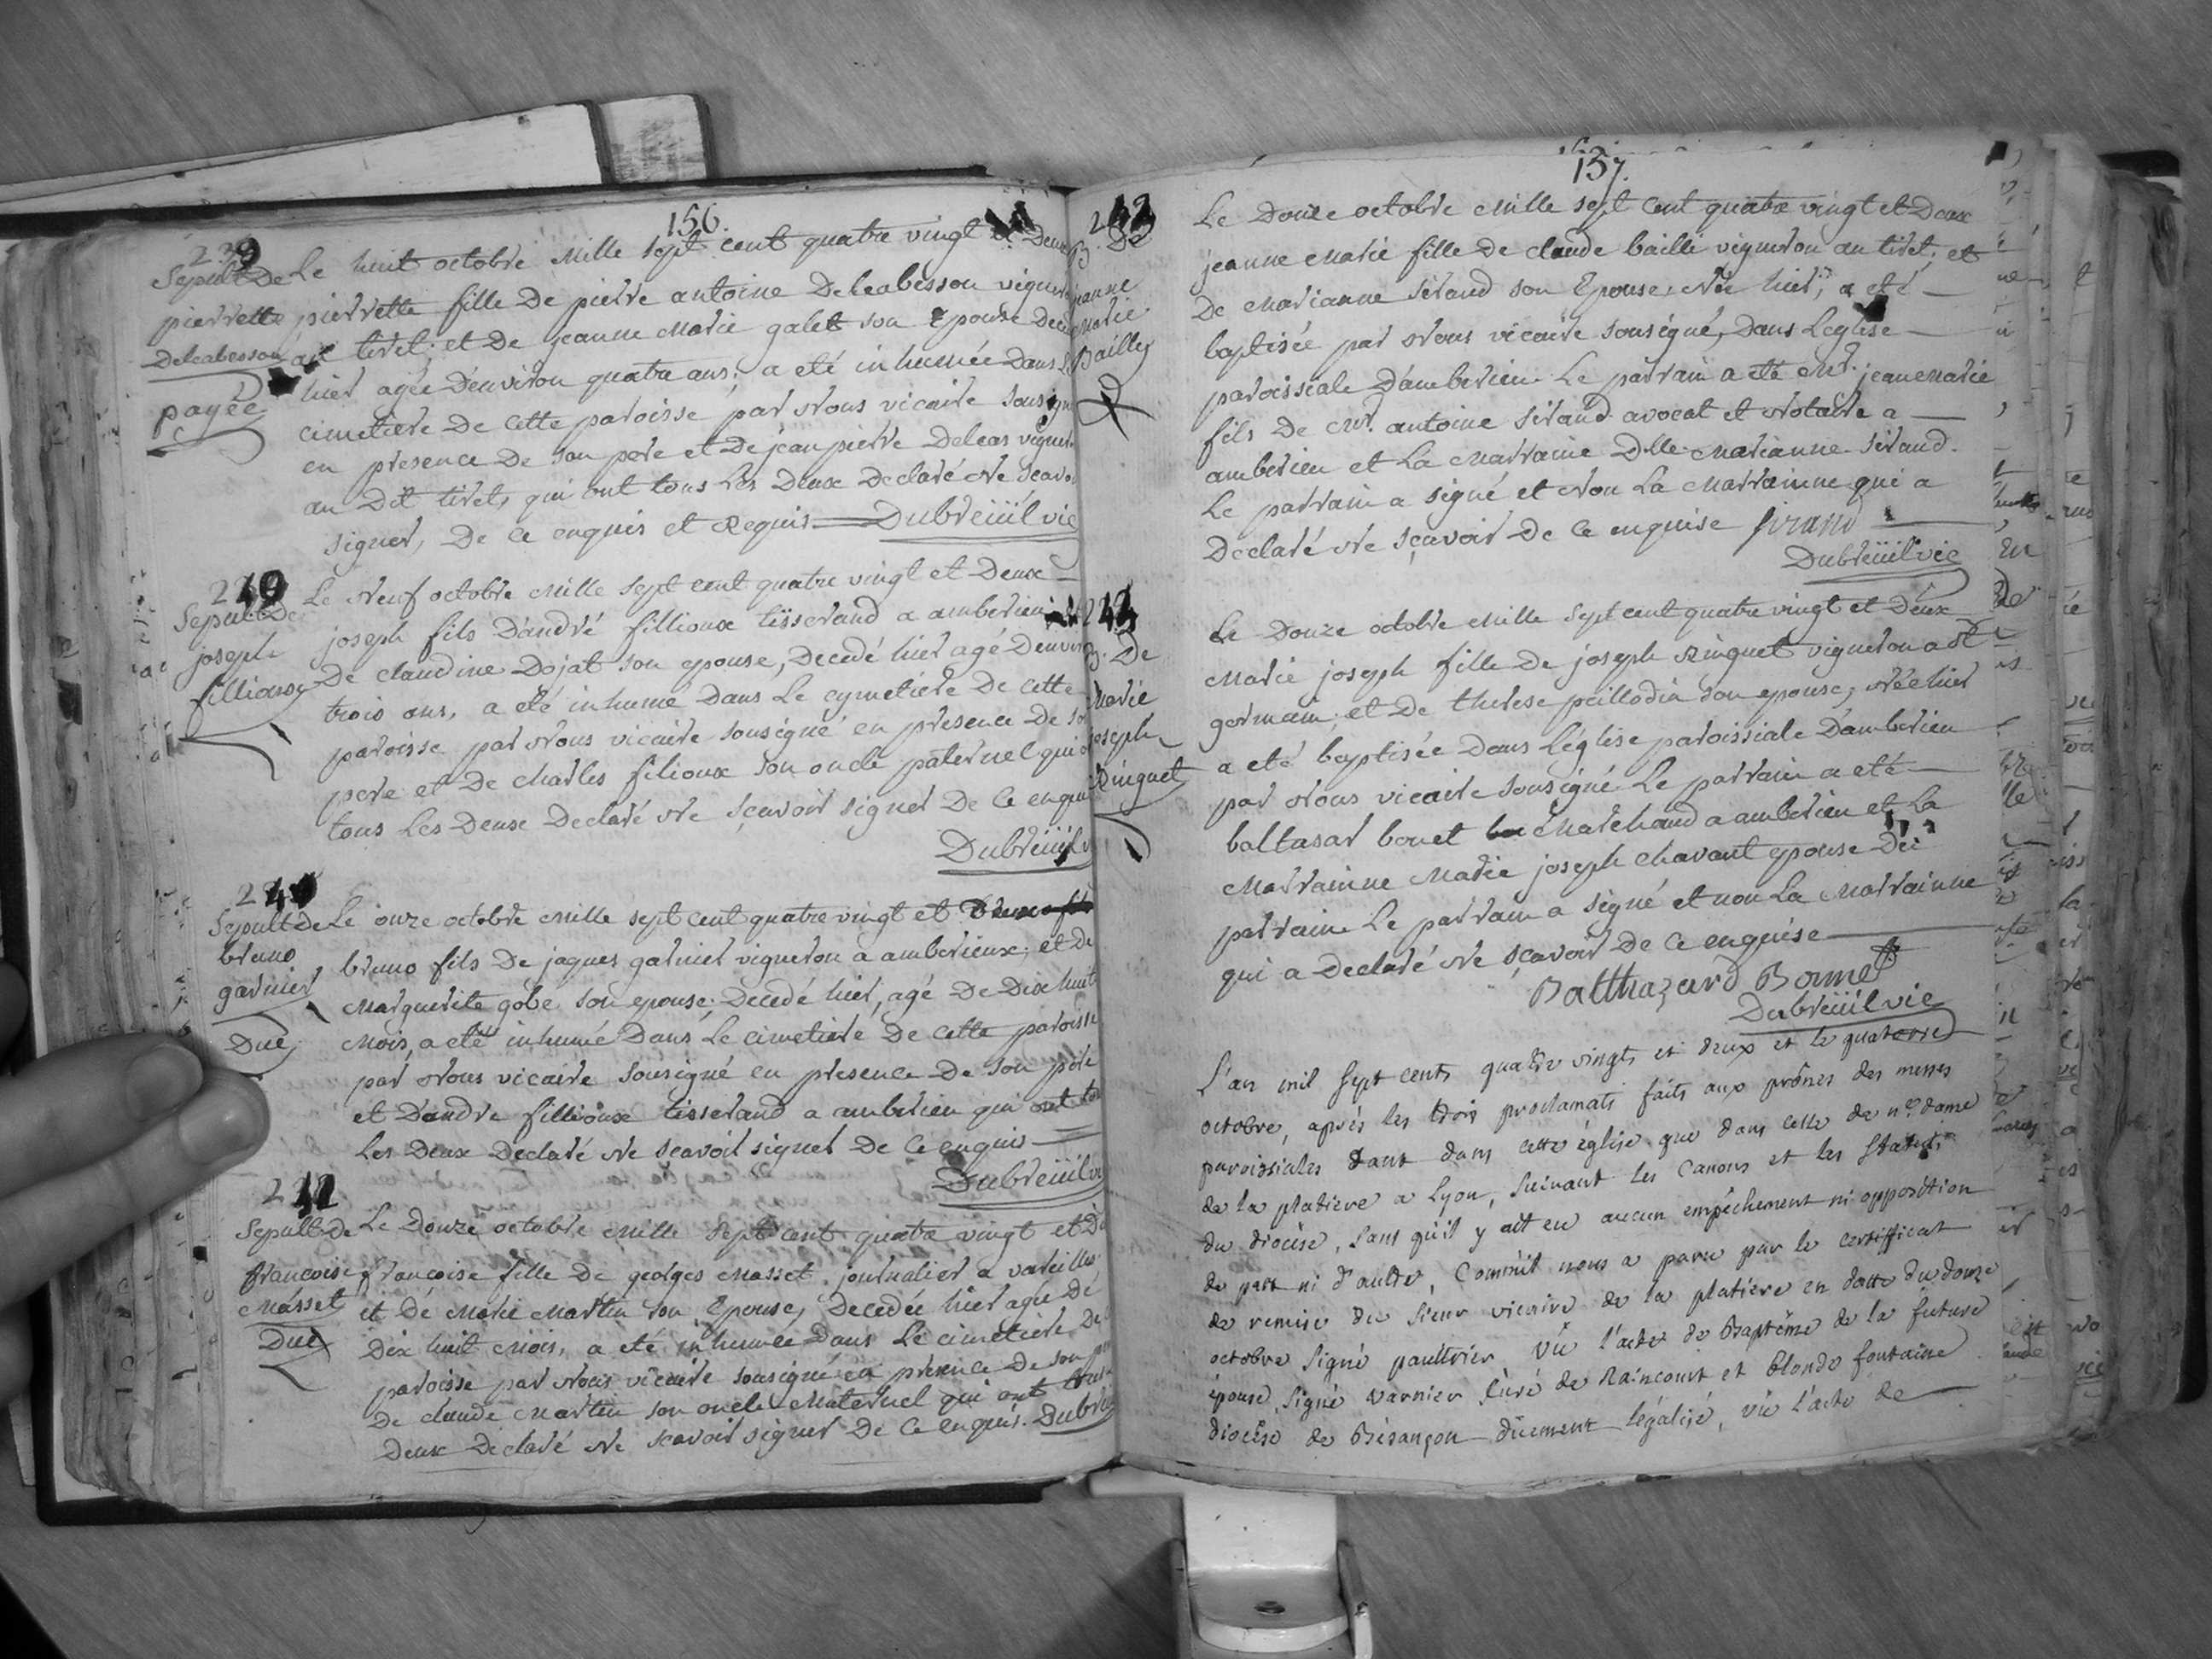 156.
239
Sepult De
pierrette
Deleabesson
payée
Le huit octobre mille sept cent quatre vingt et Deux
pierrette fille De pierre antoine Deleabesson vigneron
au tiret; et De jeanne Marie galet son Epouse Decedée
hier agée D'environ quatre ans; a eté inhumée Dans Le
cimetiere De cette paroisse par Nous vicaire sousigné
en presence De son pere et De jean pierre Deleas vigneron
au Dit tiret, qui ont tous Les Deux Declaré Ne scavoir
signer, De ce enquis et Requis Dubreüil vic
240
Sepult De
joseph
fillioux
Le Neuf octobre Mille sept cent quatre vingt et Deux
joseph fils D'andré fillioux tisserand a amberieu et
De claudine Dojat son epouse, Decedé hier agé D'environ
trois ans, a eté inhumé Dans Le cymetiere De cette
paroisse par Nous vicaire sousigné en presence De son
pere et De Charles filioux son oncle paternel qui ont
tous Les Deux Declaré Ne sçavoir signer De ce enquis
Dubreüil vic
241
Sepult de
bruno
garnier
Due
Le onze octobre Mille sept cent quatre vingt et Deux
bruno fils De jaques garnier vigneron a amberieux; et de
Marguerite gobe son epouse; Decedé hier, agé De Dix huit
Mois, a eté inhumé Dans Le cimetiere De cette paroisse
par Nous vicaire sousigné en presence De son pere
et D'andre fillioux tisserand a amberieu qui ont tous
Les Deux Declaré Ne scavoir signer De ce enquis
Dubreüil vic
242
Sepult De
francoise
Masset
Due
Le Douze octobre Mille sept cent quatre vingt et Deux
francoise fille De georges Masset journalier a vareilles
et De Marie Martin son Epouse, Decedée hier agée De
Dix huit Mois, a eté inhumée Dans Le cimetiere De
paroisse par Nous vicaire sousigné en presence De son pere
De claude Martin son oncle Maternel qui ont tous
Deux Declaré Ne scavoir signer De ce enquis. Dubreüil
157.
B. De
jeanne
Marie
Bailly
Le Douze octobre Mille sept cent quatre vingt et Deux
jeanne Marie fille De claude bailli vigneron au tiret; et
De Marianne sirand son Epouse; Née hier; a eté
baptisée par Nous vicaire sousigné, Dans L'eglise
paroissiale D'amberieu Le parrain a eté Mr. jean Marie
fils De Mr. antoine sirand avocat et Notaire a
amberieu et La Marraine Dlle Marianne sirand.
Le parrain a signé et Non La Marrainne qui a
Declaré Ne sçavoir De ce enquise Sirand
Dubreüil vic
B. De
Marie
joseph
Ringuet
Le Douze octobre Mille sept cent quatre vingt et Deux
Marie joseph fille De joseph Ringuet vigneron a st
germain; et De therese paillodin son epouse, Née hier
a eté baptisée Dans L'église paroissiale D'amberieu
par Nous vicaire sousigné Le parrain a eté
baltasar bonet Marchand a amberieu et La
Marrainne Marie joseph chavant epouse Du
parrain Le parrain a signé et non La Marrainne
qui a Declaré Ne sçavoir De ce enquise
Balthazard Bonnet
Dubreüil vic
L'an mil sept cents quatre vingts et deux et le quatorze
octobre, aprés les trois proclamats faits aux prônes des messes
paroissiales tant dans cette église que dans celle de ne. dame
de la platiere a Lyon, suivant les Canons et les Statuts
du diocèse, sans qu'il y ait eu aucun empêchement ni opposition
de part ni d'autre, Comm'il nous a paru par le certifficat
de remise du sieur vicaire de la platiere en datte du douze
octobre signé paultrier, vû l'acte de Baptême de la future
épouse, signé varnier curé de Raincourt et blonde fontaine
diocèse de Bésançon düement légalisé, vû l'acte de